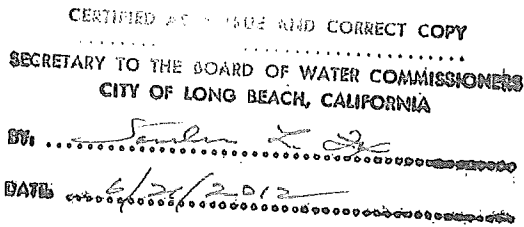 CERTIFIED AS A TRUE AND CORRECT COPY
SECRETARY TO THE BOARD OF WATER COMMISSIONERS
CITY OF LONG BEACH, CALIFORNIA
BY: Sandra L. Fox
DATE: 6/21/2012